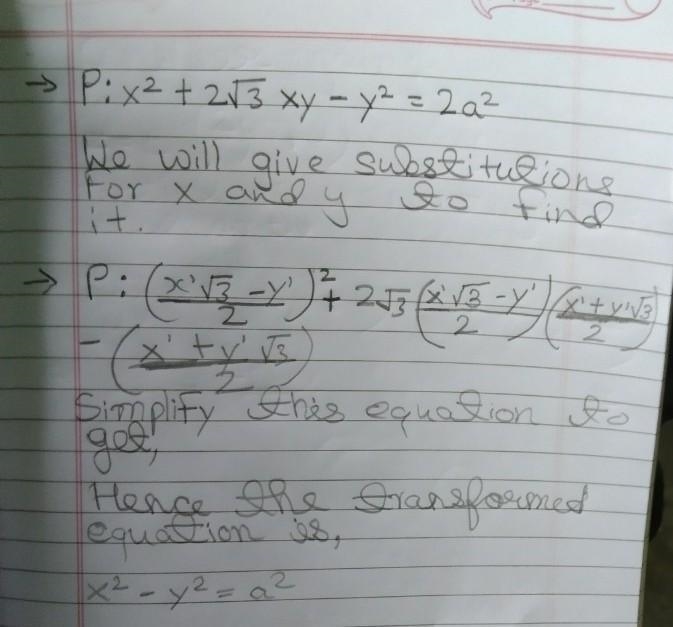 → P: x² + 2√3 xy - y² = 2a²
We will give substitutions
For x and y to find
it.
→ P: (x'√3 - y'/2)² + 2√3 (x'√3 - y'/2) (x' + y'√3/2)
- (x' + y' √3/2)
Simplify this equation to
get,
Hence the transformed
equation is,
x² - y² = a²